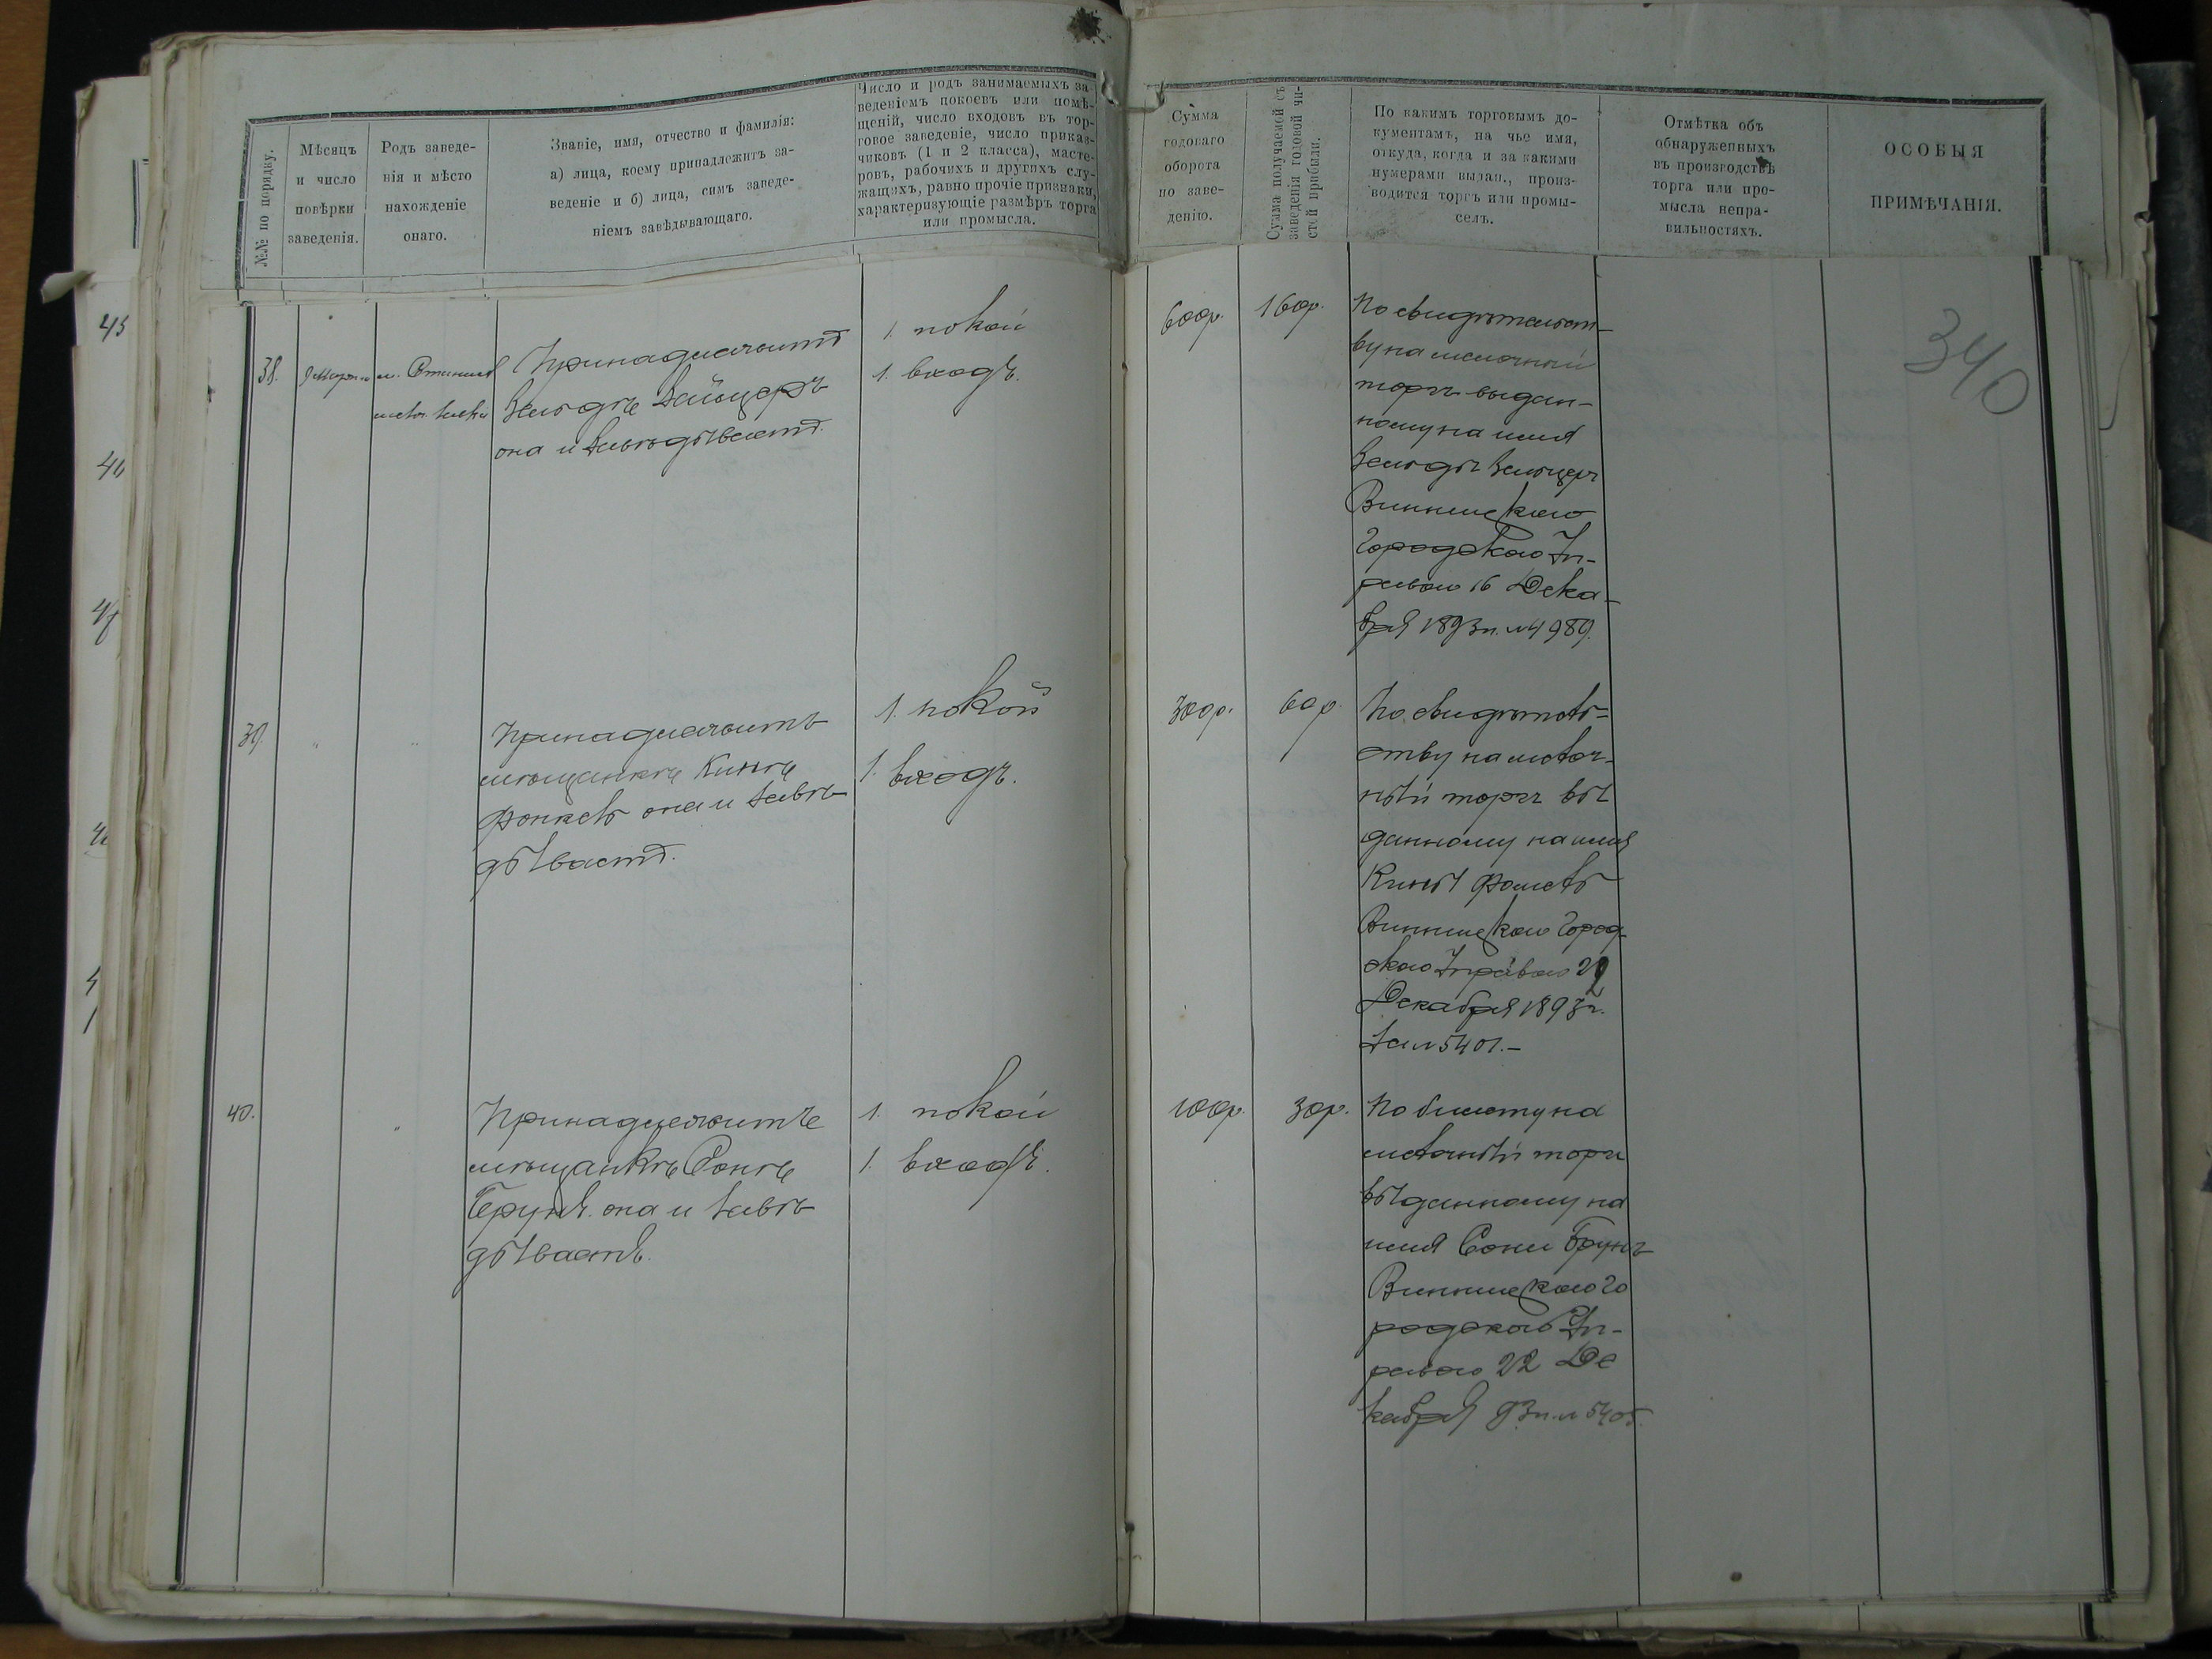 №№ по порядку.
Мѣсяцъ
и число
повѣрки
заведенія.
Родъ заведе-
нія и мѣсто
нахожденіе
онаго.
Званіе, имя, отчество и фамилія:
а) лица, коему принадлежитъ за-
веденіе и б) лица, симъ заведе-
ніемъ завѣдывающаго.
Число и родъ занимаемыхъ за-
веденіемъ покоевъ или помѣ-
щеній, число входовъ въ тор-
говое заведеніе, число приказ-
чиковъ (1 и 2 класса), масте-
ровъ, рабочихъ и другихъ слу-
жащихъ, равно прочіе признаки,
характеризующіе размѣръ торга
или промысла.
Сумма
годоваго
оборота
по заве-
денію.
Сумма получаемой съ
заведенія годовой чи-
стой прибыли.
По какимъ торговымъ до-
кументамъ, на чье имя,
откуда, когда и за какими
нумерами выдан., произ-
водится торгъ или промы-
селъ.
Отмѣтка объ
обнаруженныхъ
въ производствѣ
торга или про-
мысла непра-
вильностяхъ.
ОСОБЫЯ
ПРИМѢЧАНІЯ.
340
38.
Принадлежитъ
она и завѣдываетъ.
1. покой
1. входъ.
600р.
160р.
По свидѣтельст-
ву на мелочный
торгъ выдан-
ному на имя
Винницкаго
Городского Уп-
равою 16 Дека-
бря 1893 г. № 4989.
39.
"
"
Принадлежитъ
мѣщанкѣ
она и завѣ-
дываетъ.
1. покой
1. входъ.
300р.
60р.
По свидѣтель-
ству на мелоч-
ный торгъ вы
данному на имя
Винницкаго Город-
ского Управою
Декабря 1893 г.
за № 5401.—
40.
"
Принадлежитъ
мѣщанкѣ Сонѣ
Брунъ она и завѣ-
дываетъ.
1. покой
1. входъ.
100р.
30р.
По билету на
мелочный торгъ
выданному на
имя Сони Брунъ
Винницкаго Го
родского Уп-
равою 22 Де
кабря 93 г. № 5405.